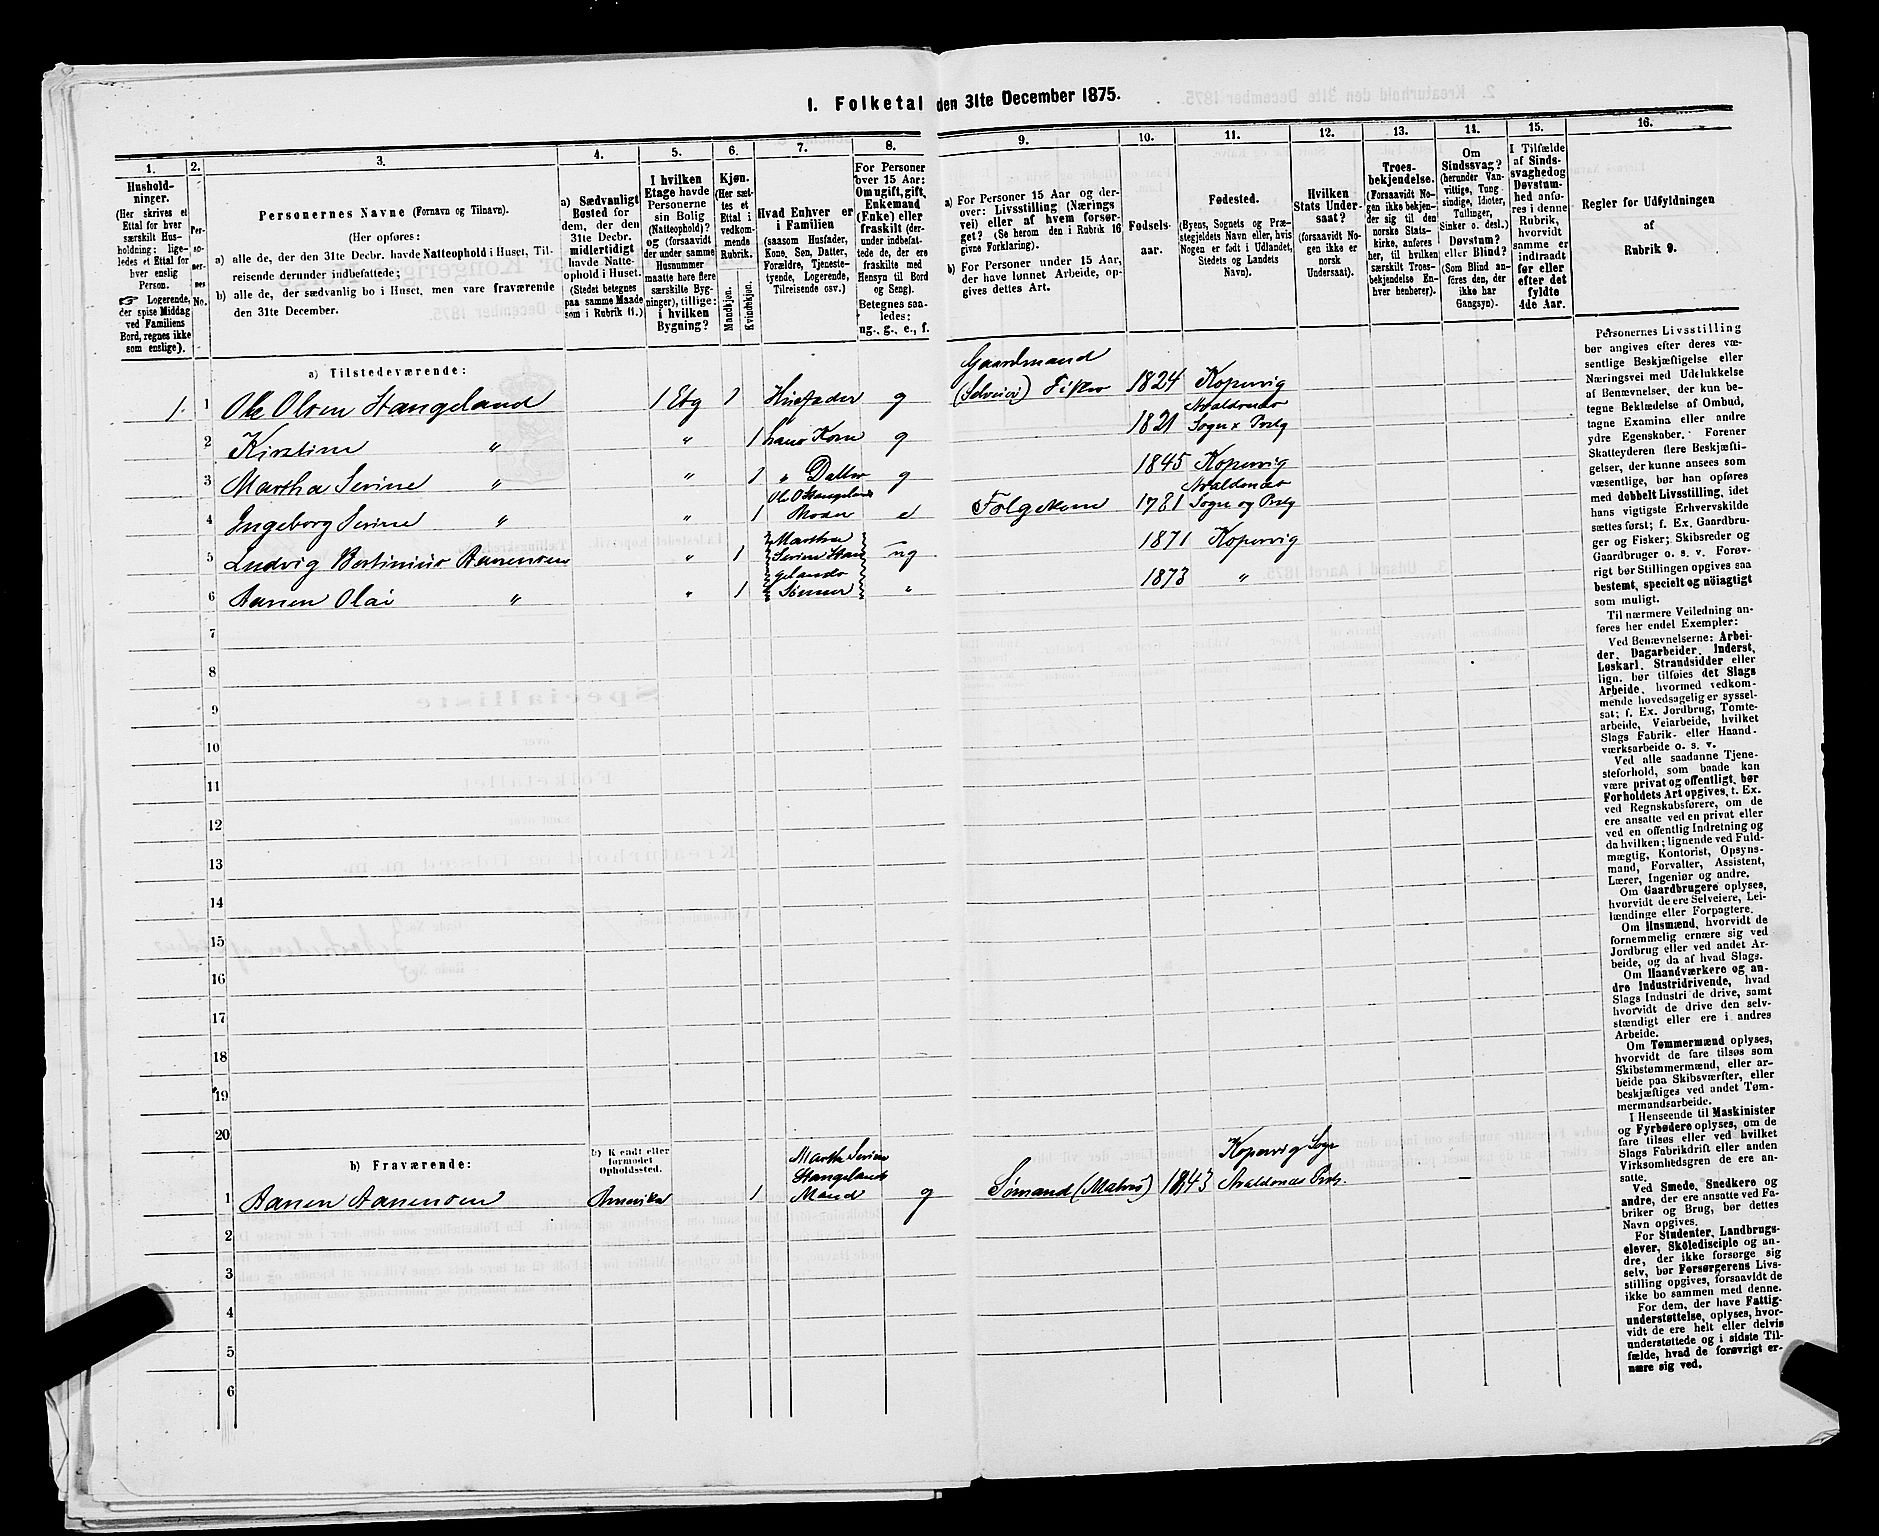 1. Folketal den 31te December 1875.
1.
2.
3.
4.
5.
6.
7.
8.
9.
10.
11.
12.
13.
14.
15.
16.
Hushold-
ninger.
(Her skrives et
Ettal for hver
særskilt Hus-
holdning; lige-
ledes et Ettal for
hver enslig
Person.
☞ Logerende,
der spise Middag
ved Familiens
Bord, regnes ikke
som enslige).
Per-
so-
ner-
nes
No.
Personernes Navne (Fornavn og Tilnavn).
(Her opføres:
a) alle de, der den 31te Decbr. havde Natteophold i Huset, Til-
reisende derunder indbefattede;
b) alle de, der sædvanlig bo i Huset, men vare fraværende
den 31te December.
a) Sædvanligt
Bosted for
dem, der den
31te Decbr.
midlertidigt
havde Natte-
ophold i Huset.
(Stedet betegnes
paa samme Maade
som i Rubrik 11.)
I hvilken
Etage havde
Personerne
sin Bolig
(Natteophold)?
og (forsaavidt
der under samme
Husnummer
maatte høre flere
særskilte Byg-
ninger), tillige:
i hvilken
Bygning?
Kjøn.
(Her sæt-
tes et
Ettal i
vedkom-
mende
Rubrik.
Mandkjøn.
Kvindekjøn.
Hvad Enhver er
i Familien
(saasom Husfader,
Kone, Søn, Datter,
Forældre, Tjeneste-
tyende, Logerende,
Tilreisende osv.)
For Personer
over 15 Aar:
Om ugift, gift,
Enkemand
(Enke) eller
fraskilt (der-
under indbefat-
tede de, der ere
fraskilte med
Hensyn til Bord
og Seng).
Betegnes saa-
ledes:
ng., g., e., f.
a) For Personer 15 Aar og der-
over: Livsstilling (Nærings
vei) eller af hvem forsør-
get? (Se herom den i Rubrik 16
givne Forklaring).
b) For Personer under 15 Aar,
der have lønnet Arbeide, op-
gives dettes Art.
Fødsels-
aar.
Fødested.
(Byens, Sognets og Præ-
stegjeldets Navn eller, hvis
Nogen er født i Udlandet,
Stedets og Landets
Navn).
Hvilken
Stats Under-
saat?
(forsaavidt No-
gen ikke er
norsk
Undersaat).
Troes-
bekjendelse.
(Forsaavidt No-
gen ikke bekjen-
der sig til den
norske Stats-
kirke, anføres
her, til hvilken
særskilt Troes-
bekjendelse En-
hver henhører).
Om
Sindssvag?
(herunder Van-
vittige, Tung-
sindige, Idioter,
Tullinger,
Sinker o. desl.)
Døvstum?
eller Blind?
(Som Blind an-
føres den, der
ikke har
Gangsyn).
I Tilfælde
af Sinds-
svaghed og
Døvstum-
hed anfø-
res i denne
Rubrik,
hvorvidt
samme er
indtraadt
før eller
efter det
fyldte
4de Aar.
Regler for Udfyldningen
af
Rubrik 9.
a) Tilstedeværende:
1. 1 Ole Olsen Stangeland 1 Etg 1 Husfader g Gaardmand
(Selveier) Fisker 1824 Kopervig
2 Kirstine " " 1 hans Kone g 1821 Avaldsnæs
Sogn & Prstg
3 Martha Serine " " 1 " Datter g 1845 Kopervig
4 Ingeborg Serine " " 1 Ole O Stangelands
Moder e Folgekone 1781 Avaldsnæs
Sogn og Prstg
5 Ludvig Bertinius Aanensen " 1 Marthe
Serine Stan
gelands ug 1871 Kopervig
6 Aanen Olai " " 1 Sønner " 1873 "
7
8
9
10
11
12
13
14
15
16
17
18
19
20
b) Fraværende:
b) Kjendt eller
formodet
Opholdssted.
1 Aanen Aanensen Amerika 1 Marthe Serine
Stangelands
Mand g Sømand (Matros) 1843 Kopervig Sogn
Avaldsnæs Prstg.
2
3
4
5
6
Personernes Livsstilling
bør angives efter deres væ-
sentlige Beskjæftigelse eller
Næringsvei med Udelukkelse
af Benævnelser, der kun be-
tegne Beklædelse af Ombud,
tagne Examina eller andre
ydre Egenskaber. Forener
Skatteyderen flere Beskjæfti-
gelser, der kunne ansees som
væsentlige, bør han opføres
med dobbelt Livsstilling, idet
hans vigtigste Erhvervskilde
sættes først; f. Ex. Gaardbru-
ger og Fisker; Skibsreder og
Gaardbruger o. s. v. Forøv-
rigt bør Stillingen opgives saa
bestemt, specielt og nöiagtigt
som muligt.
Til nærmere Veiledning an-
føres her endel Exempler:
Ved Benævnelserne: Arbei-
der, Dagarbeider, Inderst,
Løskarl, Strandsidder eller
lign. bør tilføies det Slags
Arbeide, hvormed vedkom-
mende hovedsagelig er syssel-
sat; f. Ex. Jordbrug, Tomte-
arbeide, Veiarbeide, hvilket
Slags Fabrik- eller Haand-
værksarbeide o. s. v.
Ved alle saadanne Tjene-
steforhold, som baade kan
være privat og offentligt, bør
Forholdets Art opgives, t. Ex.
ved Regnskabsførere, om de
ere ansatte ved en privat eller
ved en offentlig Indretning og
da hvilken; lignende ved Fuld-
mægtig, Kontorist, Opsyns-
mand, Forvalter, Assistent,
Lærer, Ingeniør og andre.
Om Gaardbrugere oplyses,
hvorvidt de ere Selveiere, Lei-
lændinge eller Forpagtere.
Om Husmænd, hvorvidt de
fornemmelig ernære sig ved
Jordbrug eller ved andet Ar-
beide, og da af hvad Slags.
Om Haandværkere og an-
dre Industridrivende, hvad
Slags Industri de drive, samt
hvorvidt de drive den selv-
stændigt eller ere i andres
Arbeide.
Om Tømmermænd oplyses,
hvorvidt de fare tilsøs som
Skibstømmermænd, eller ar-
beide paa Skibsværfter, eller
beskjæftiges ved andet Tøm-
mermandsarbeide.
I Henseende til Maskinister
og Fyrbødere oplyses, om de
fare tilsøs eller ved hvilket
Slags Fabrikdrift eller anden
Virksomhedsgren de ere an-
satte.
Ved Smede, Snedkere og
andre, der ere ansatte ved Fa-
briker og Brug, bør dettes
Navn opgives.
For Studenter, Landbrugs-
elever, Skoledisciple og an-
dre, der ikke forsørge sig
selv, bør Forsørgerens Livs-
stilling opgives, forsaavidt de
ikke bo sammen med denne.
For dem, der have Fattig-
understøttelse, oplyses, hvor-
vidt de ere helt eller delvis
understøttede og i sidste Til-
fælde, hvad de forøvrigt er-
nære sig ved.